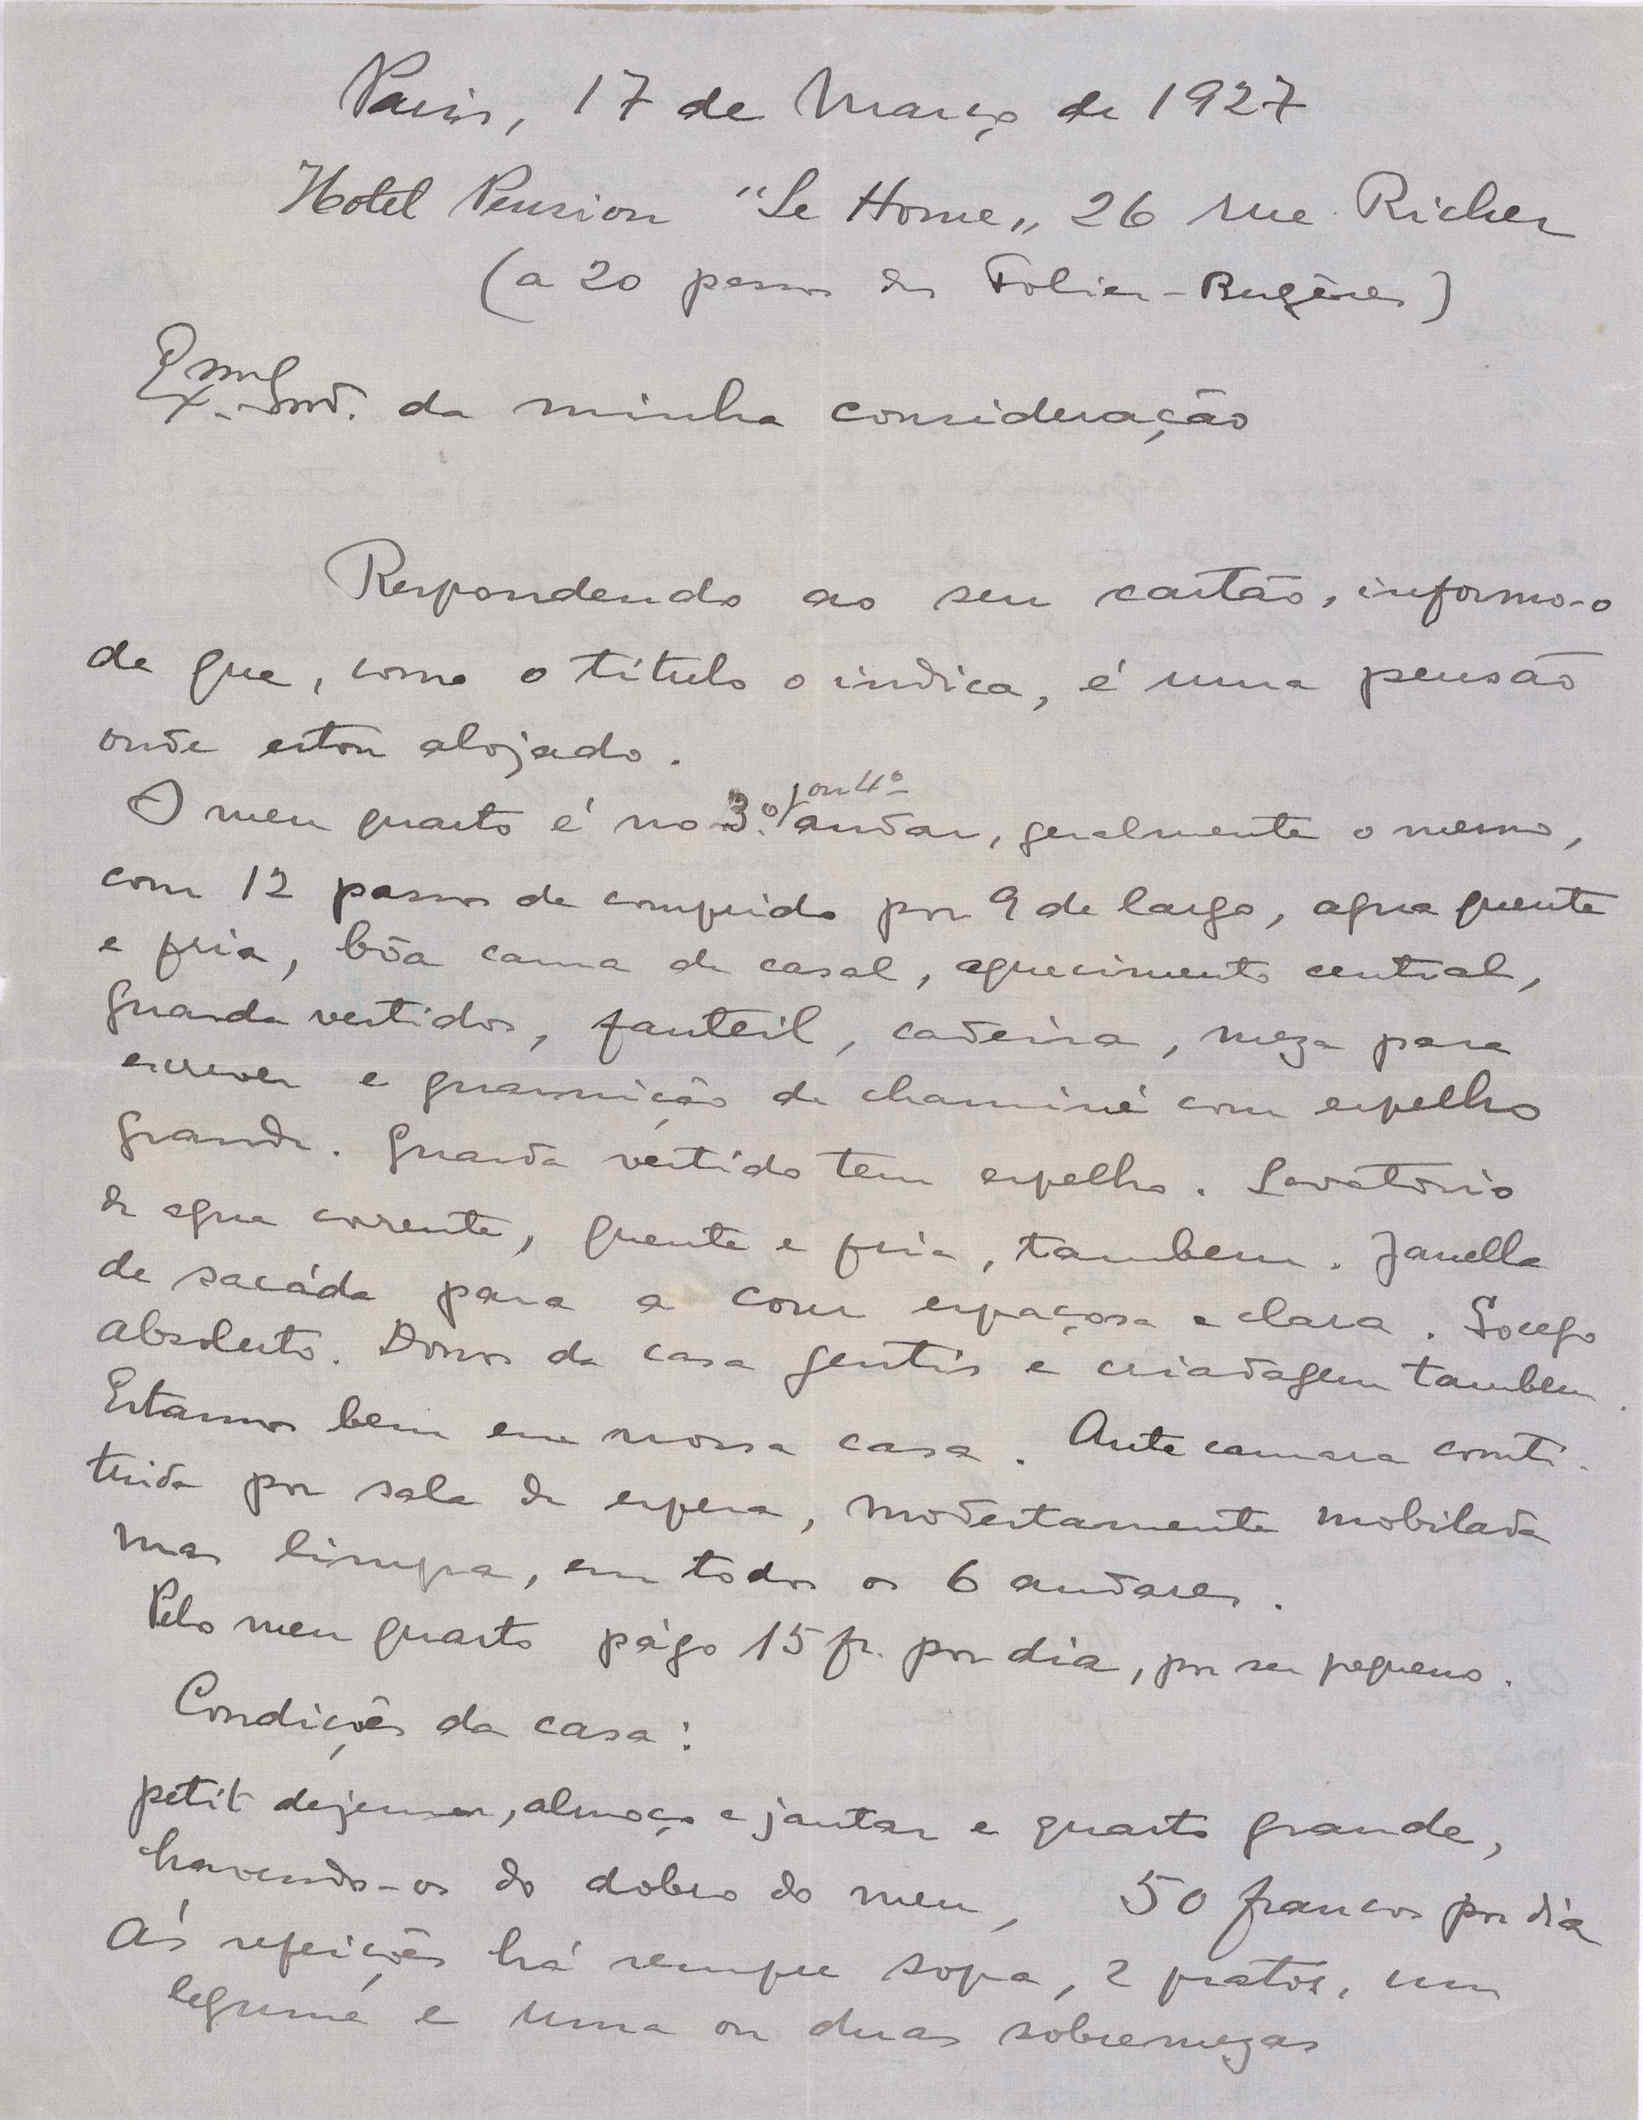 Paris, 17 de Março de 1927
Hotel Pension "Le Home„ 26 rue Richer
(a 20 passos das Folies-Bergères)
Exmo Snr. da minha consideração
Respondendo ao seu cartão, informo-o
de que, como o titulo o indica, é uma pensão
onde estou alojado.
O meu quarto é no 3.º ou 4º andar, geralmente o mesmo,
com 12 passos de comprido por 9 de largo, agua quente
e fria, bôa cama de casal, aquecimento central,
guarda vestidos, fauteil, cadeira, meza para
escrever e guarnição de chaminé com espelho
grande. Guarda vestido tem espelho. Lavatorio
de agua corrente, quente e fria, tambem. Janella
de sacáda para a cour espaçosa e clara. Socego
absoluto. Donos da casa gentis e criadagem tambem.
Estamos bem em nossa casa. Ante camara consti-
tuida por sala de espera, modestamente mobilada
mas limpa, em todos os 6 andares.
Pelo meu quarto págo 15 fr. por dia, por ser pequeno.
Condições da casa:
petit dejeuner, almoço e jantar e quarto grande,
havendo-os do dobro do meu, 50 francos por dia
Ás refeições há sempre sopa, 2 pratos, um
legume e uma ou duas sobremezas